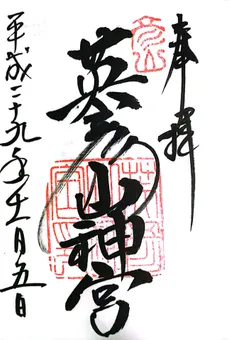 奉拝
英彦山神宮
平成二十九年十一月五日